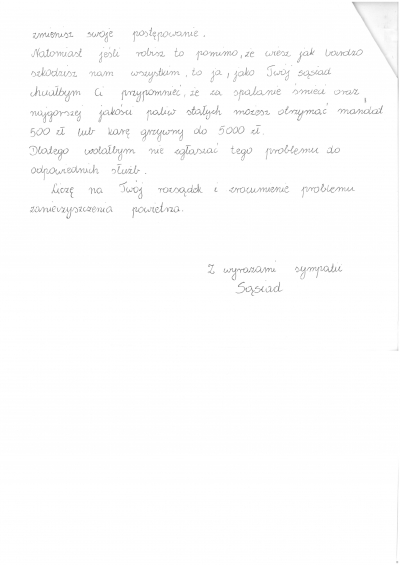 zmienisz swoje postępowanie.
Natomiast jeśli robisz to pomimo, że wiesz jak bardzo
szkodzisz nam wszystkim, to ja, jako Twój sąsiad
chciałbym Ci przypomnieć, że za spalanie śmieci oraz
najgorszej jakości paliw stałych możesz otrzymać mandat
500 zł lub karę grzywny do 5000 zł.
Dlatego wolałbym nie zgłaszać tego problemu do
odpowiednich służb.
Liczę na Twój rozsądek i zrozumienie problemu
zanieczyszczenia powietrza.
Z wyrazami sympatii
Sąsiad